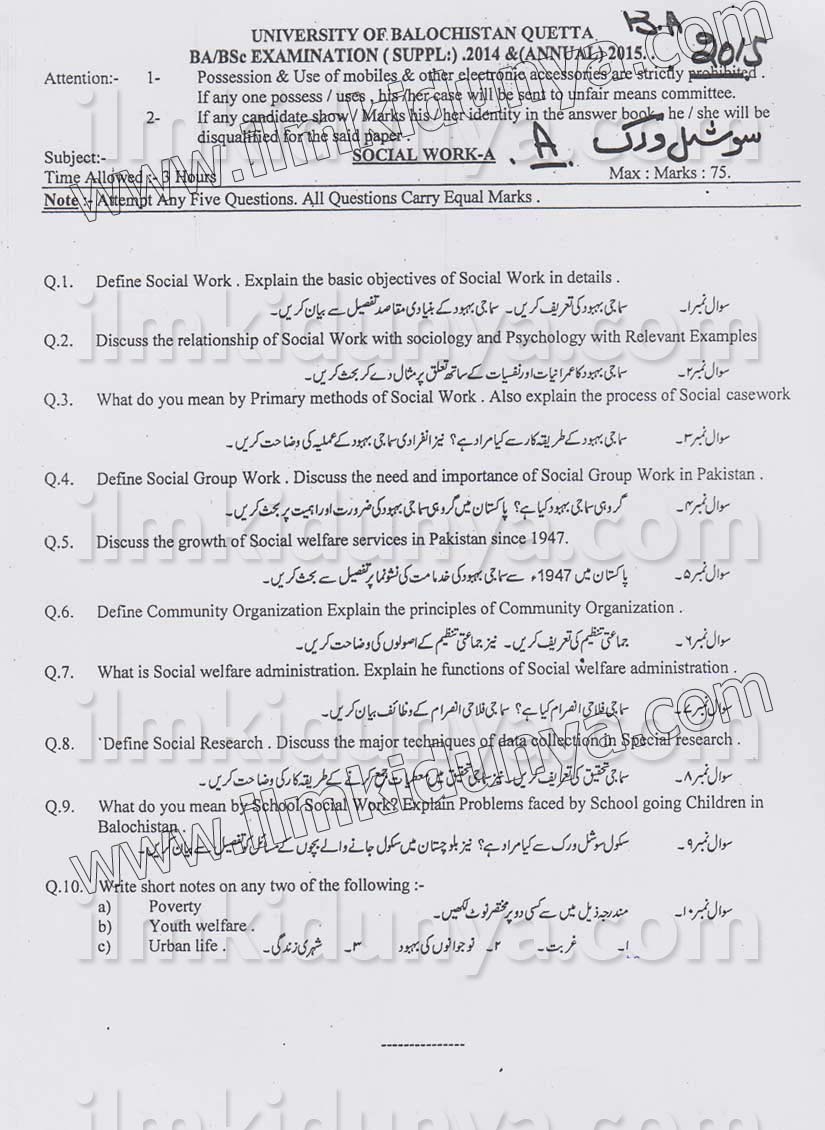 UNIVERSITY OF BALOCHISTAN QUETTA
B.A
BA/BSc EXAMINATION ( SUPPL:) .2014 &(ANNUAL) 2015. .
2015
Attention:- 1- Possession & Use of mobiles & other electronic accessories are strictly prohibited .
If any one possess / uses , his /her case will be sent to unfair means committee.
2- If any candidate show / Marks his / her identity in the answer book , he / she will be
disqualified for the said paper .
Subject:- SOCIAL WORK-A . A سوشل ورک
Time Allowed :- 3 Hours Max : Marks : 75.
Note :- Attempt Any Five Questions. All Questions Carry Equal Marks .
Q.1. Define Social Work . Explain the basic objectives of Social Work in details .
سوال نمبر ۱۔ سماجی بہبود کی تعریف کریں۔ سماجی بہبود کے بنیادی مقاصد تفصیل سے بیان کریں۔
Q.2. Discuss the relationship of Social Work with sociology and Psychology with Relevant Examples
سوال نمبر ۲۔ سماجی بہبود کا عمرانیات اور نفسیات کے ساتھ تعلق پر مثال دے کر بحث کریں۔
Q.3. What do you mean by Primary methods of Social Work . Also explain the process of Social casework
سوال نمبر ۳۔ سماجی بہبود کے طریقہ کار سے کیا مراد ہے؟ نیز انفرادی سماجی بہبود کے عملیہ کی وضاحت کریں۔
Q.4. Define Social Group Work . Discuss the need and importance of Social Group Work in Pakistan .
سوال نمبر ۴۔ گروہی سماجی بہبود کیا ہے؟ پاکستان میں گروہی سماجی بہبود کی ضرورت اور اہمیت پر بحث کریں۔
Q.5. Discuss the growth of Social welfare services in Pakistan since 1947.
سوال نمبر ۵۔ پاکستان میں 1947ء سے سماجی بہبود کی خدامت کی نشونما پر تفصیل سے بحث کریں۔
Q.6. Define Community Organization Explain the principles of Community Organization .
سوال نمبر ۶۔ جماعتی تنظیم کی تعریف کریں۔ نیز جماعتی تنظیم کے اصولوں کی وضاحت کریں۔
Q.7. What is Social welfare administration. Explain he functions of Social welfare administration .
سوال نمبر ۷۔ سماجی فلاحی انصرام کیا ہے؟ سماجی فلاحی انصرام کے وظائف بیان کریں۔
Q.8. `Define Social Research . Discuss the major techniques of data collection in Special research .
سوال نمبر ۸۔ سماجی تحقیق کی تعریف کریں۔ نیز سماجی تحقیق میں معطیات جمع کرنے کے طریقہ کار کی وضاحت کریں۔
Q.9. What do you mean by School Social Work? Explain Problems faced by School going Children in
Balochistan .
سوال نمبر ۹۔ سکول سوشل ورک سے کیا مراد ہے؟ نیز بلوچستان میں سکول جانے والے بچوں کے مسائل کو تفصیل سے بیان کریں۔
Q.10. Write short notes on any two of the following :-
سوال نمبر ۱۰۔ مندرجہ ذیل میں سے کسی دو پر مختصر نوٹ لکھیں۔
a) Poverty
b) Youth welfare .
c) Urban life .
۱۔ غربت۔ ۲۔ نوجوانوں کی بہبود ۳۔ شہری زندگی۔
---------------
www.ilmkidunya.com
www.ilmkidunya.com
ilmkidunya.com
ilmkidunya.com
ilmkidunya.com
ilmkidunya.com
ilmkidunya.com
ilmkidunya.com